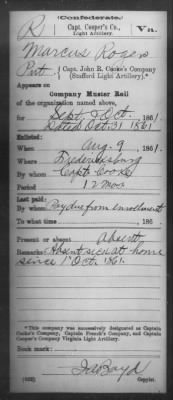 (Confederate.)
R
Capt. Cooper's Co., Light Artillery.
Va.
Marcus Rogers
Pvt., { Capt. John E. Cooke's Company (Stafford Light Artillery).*
Appears on
Company Muster Roll
of the organization named above,
for Sept & Oct., 1861.
Dated Oct. 31 1861
Enlisted:
When Aug. 9, 1861.
Where Fredericksburg
By whom Capt. Cooke
Period 12 mos
Last paid:
By whom Pay due from enrollment
To what time , 186 .
Present or absent Absent
Remarks: Absent sick at home
since 1 Oct. 1861.
*This company was successively designated as Captain Cooke's Company, Captain French's Company, and Captain Cooper's Company Virginia Light Artillery.
Book mark:
(642)
Copyist.